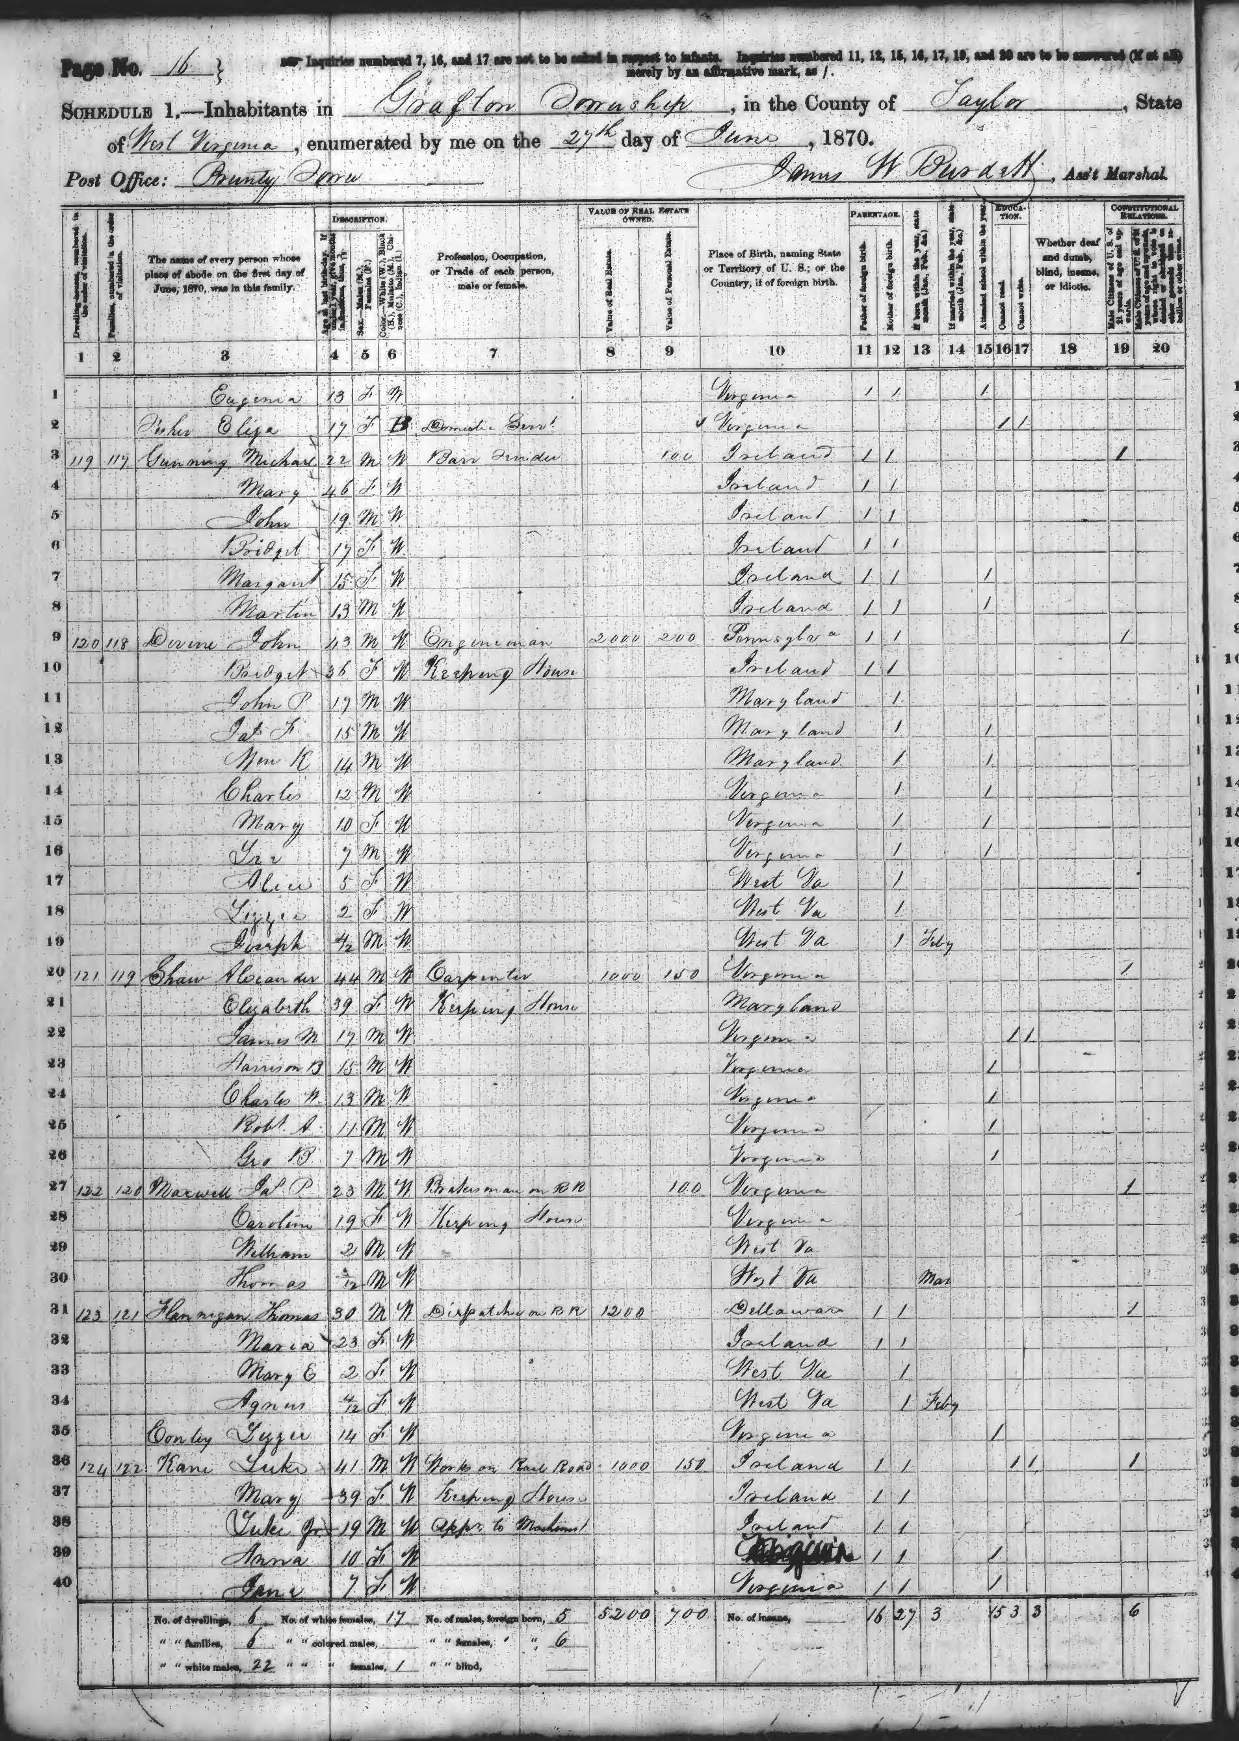 Page No. 16
Inquiries numbered 7, 16, and 17 are not to be asked in respect to infants. Inquiries numbered 11, 12, 15, 16, 17, 19, and 20 are to be answered (if at all) merely by an affirmative mark, as /.
SCHEDULE 1.—Inhabitants in Grafton Township, in the County of Taylor, State
of West Virginia, enumerated by me on the 27th day of June, 1870.
Post Office: Prunty Town James W Burdett, Ass't Marshal.
DESCRIPTION. VALUE OF REAL ESTATE OWNED. PARENTAGE. EDUCATION. CONSTITUTIONAL RELATIONS.
The name of every person whose place of abode on the first day of June, 1870, was in this family.
Profession, Occupation, or Trade of each person, male or female.
Value of Real Estate. Value of Personal Estate.
Place of Birth, naming State or Territory of U. S.; or the Country, if of foreign birth.
Father of foreign birth. Mother of foreign birth.
Attended school within the year. Cannot read. Cannot write.
Whether deaf and dumb, blind, insane, or idiotic.
1 2 3 4 5 6 7 8 9 10 11 12 13 14 15 16 17 18 19 20
1 Eugenia 13 F W Virginia / / /
2 Eliza 17 F B Domestic Servt Virginia / /
3 119 117 Gunning Michael 22 M W Barr Tender 100 Ireland / / /
4 Mary 46 F W Ireland / /
5 John 19 M W Ireland / /
6 Bridget 17 F W Ireland / /
7 Margaret 15 F W Ireland / / /
8 Martin 13 M W Ireland / / /
9 120 118 Devine John 43 M W Engineman 2000 200 Pennsylva / / /
10 Bridget 36 F W Keeping House Ireland / /
11 John P 17 M W Maryland /
12 Jas F 15 M W Maryland / /
13 Wm K 14 M W Maryland / /
14 Charles 12 M W Virginia / /
15 Mary 10 F W Virginia / /
16 Ira 7 M W Virginia / /
17 Alice 5 F W West Va /
18 Lizzie 2 F W West Va /
19 Joseph 4/12 M W West Va / Feby
20 121 119 Shaw Alexander 44 M W Carpenter 1000 150 Virginia /
21 Elizabeth 39 F W Keeping House Maryland
22 James M 17 M W Virginia / /
23 Harrison B 15 M W Virginia /
24 Charles W 13 M W Virginia /
25 Robt A 11 M W Virginia /
26 Geo B 7 M W Virginia /
27 122 120 Maxwell Jas P 23 M W Brakesman on RR 100 Virginia /
28 Caroline 19 F W Keeping House Virginia
29 William 2 M W West Va
30 Thomas 3/12 M W West Va Mar
31 123 121 Flannigan Thomas 30 M W Dispatcher on RR 1200 Dellaware / / /
32 Maria 23 F W Ireland / /
33 Mary E 2 F W West Va /
34 Agnes 4/12 F W West Va / Feby
35 Conley Lizzie 14 F W Virginia /
36 124 122 Kane Luke 41 M W Works on Rail Road 1000 150 Ireland / / / / /
37 Mary 39 F W Keeping House Ireland / /
38 Luke Jr 19 M W Appr to Machinist Ireland / /
39 Anna 10 F W Virginia / / /
40 Jane 7 F W Virginia / / /
No. of dwellings, 6 No. of white females, 17 No. of males, foreign born, 5 5200 700 No. of insane, 16 27 3 15 3 3 6
" " families, 6 " " colored males, " " females, " " 6
" " white males, 22 " " " females, 1 " " blind,